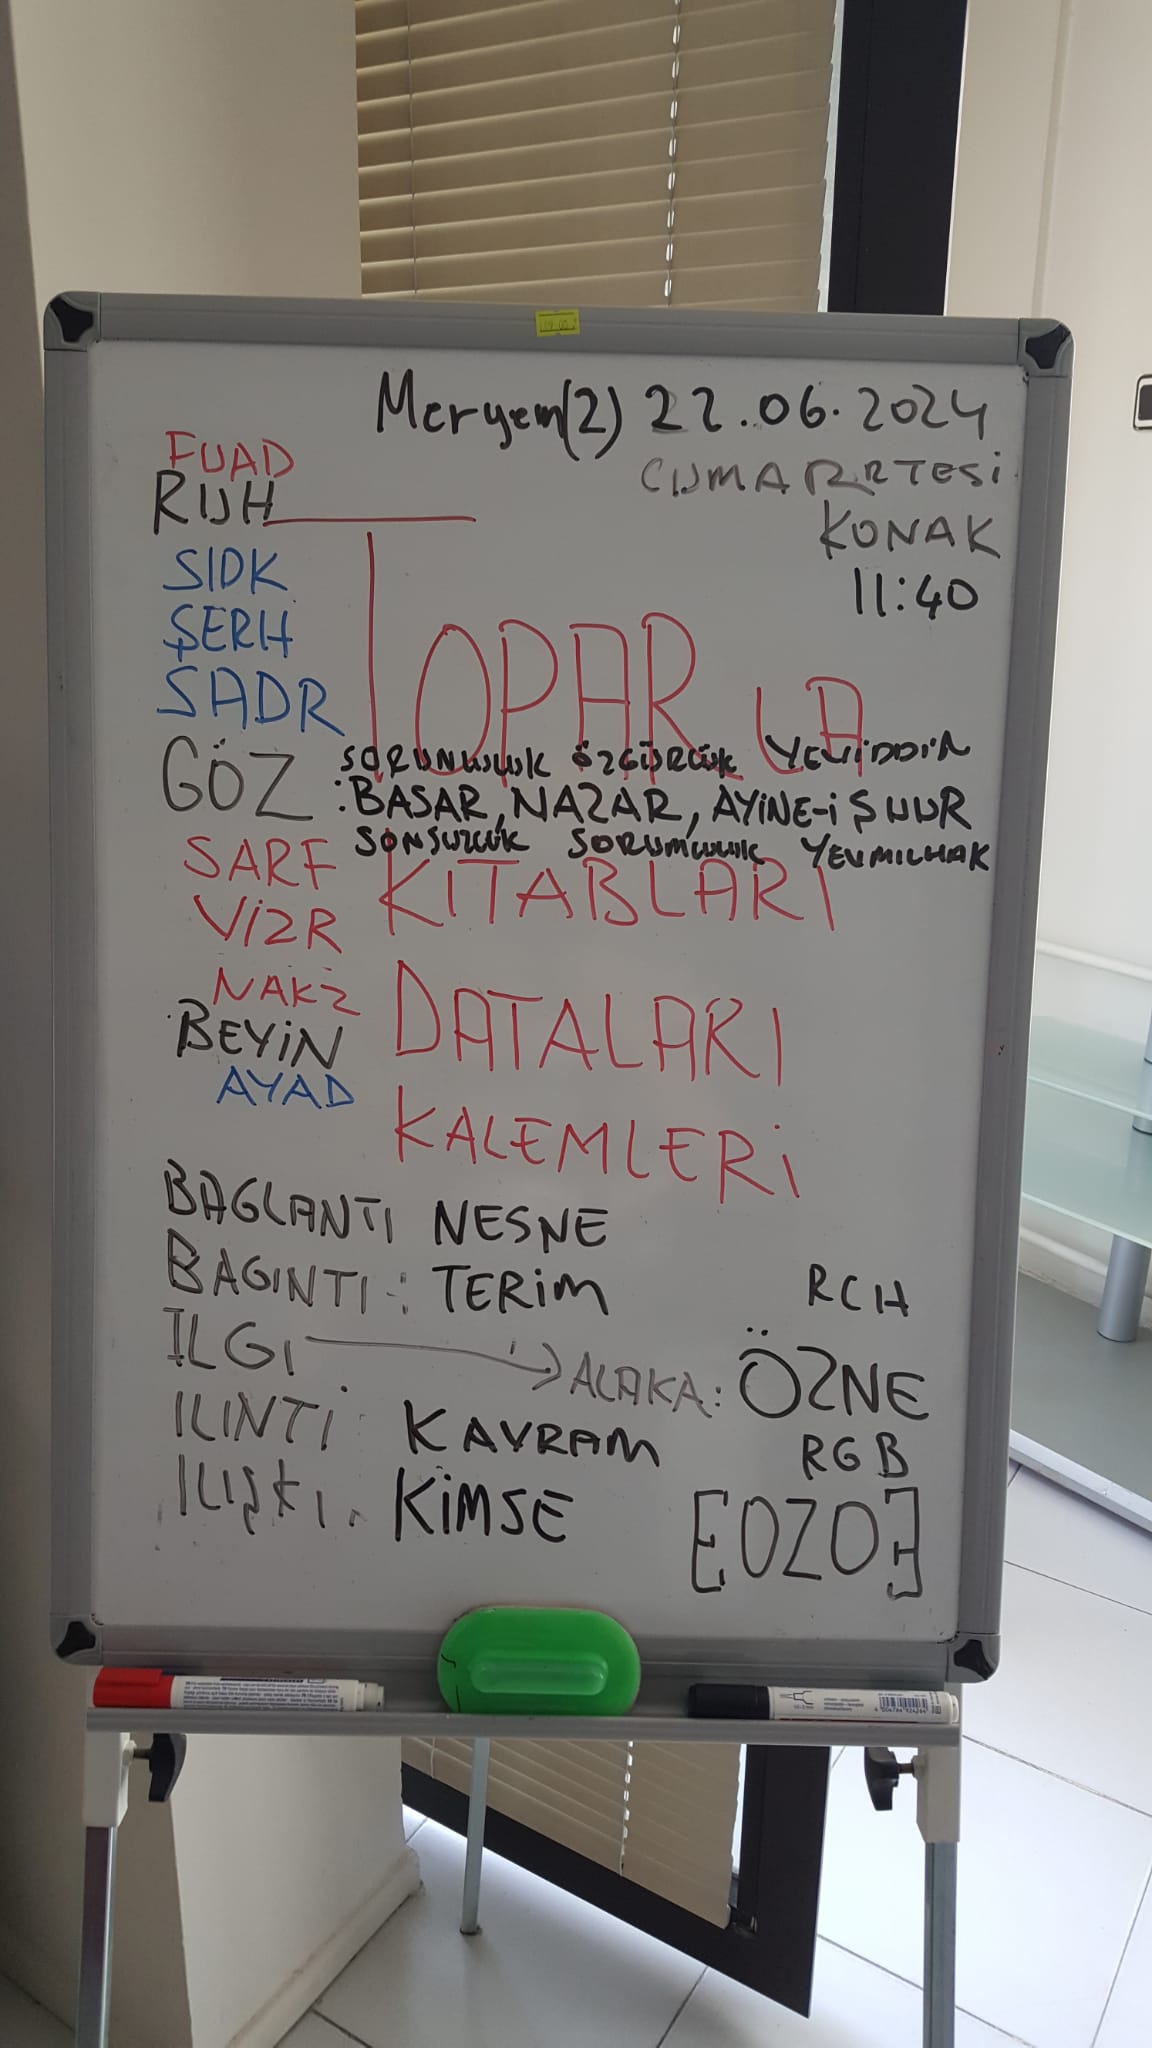 Meryem(2) 22.06.2024
CUMARRTESİ
KONAK
11:40
FUAD
RUH
SIDK
ŞERH
SADR
TOPARLA
SORUNLULUK ÖZGÜRLÜK YEVİDDİN
GÖZ :BASAR, NAZAR, AYİNE-İ ŞUUR
SONSUZLUK SORUMLULUK YEVMİLHAK
SARF
VİZR
KITABLARI
NAKZ
BEYİN
DATALARI
AYAD
KALEMLERİ
BAGLANTI NESNE
BAGINTI : TERİM
RCH
ILGI → ALAKA: ÖZNE
ILINTI : KAVRAM
RGB
ILIŞKI. KİMSE
[OZO]